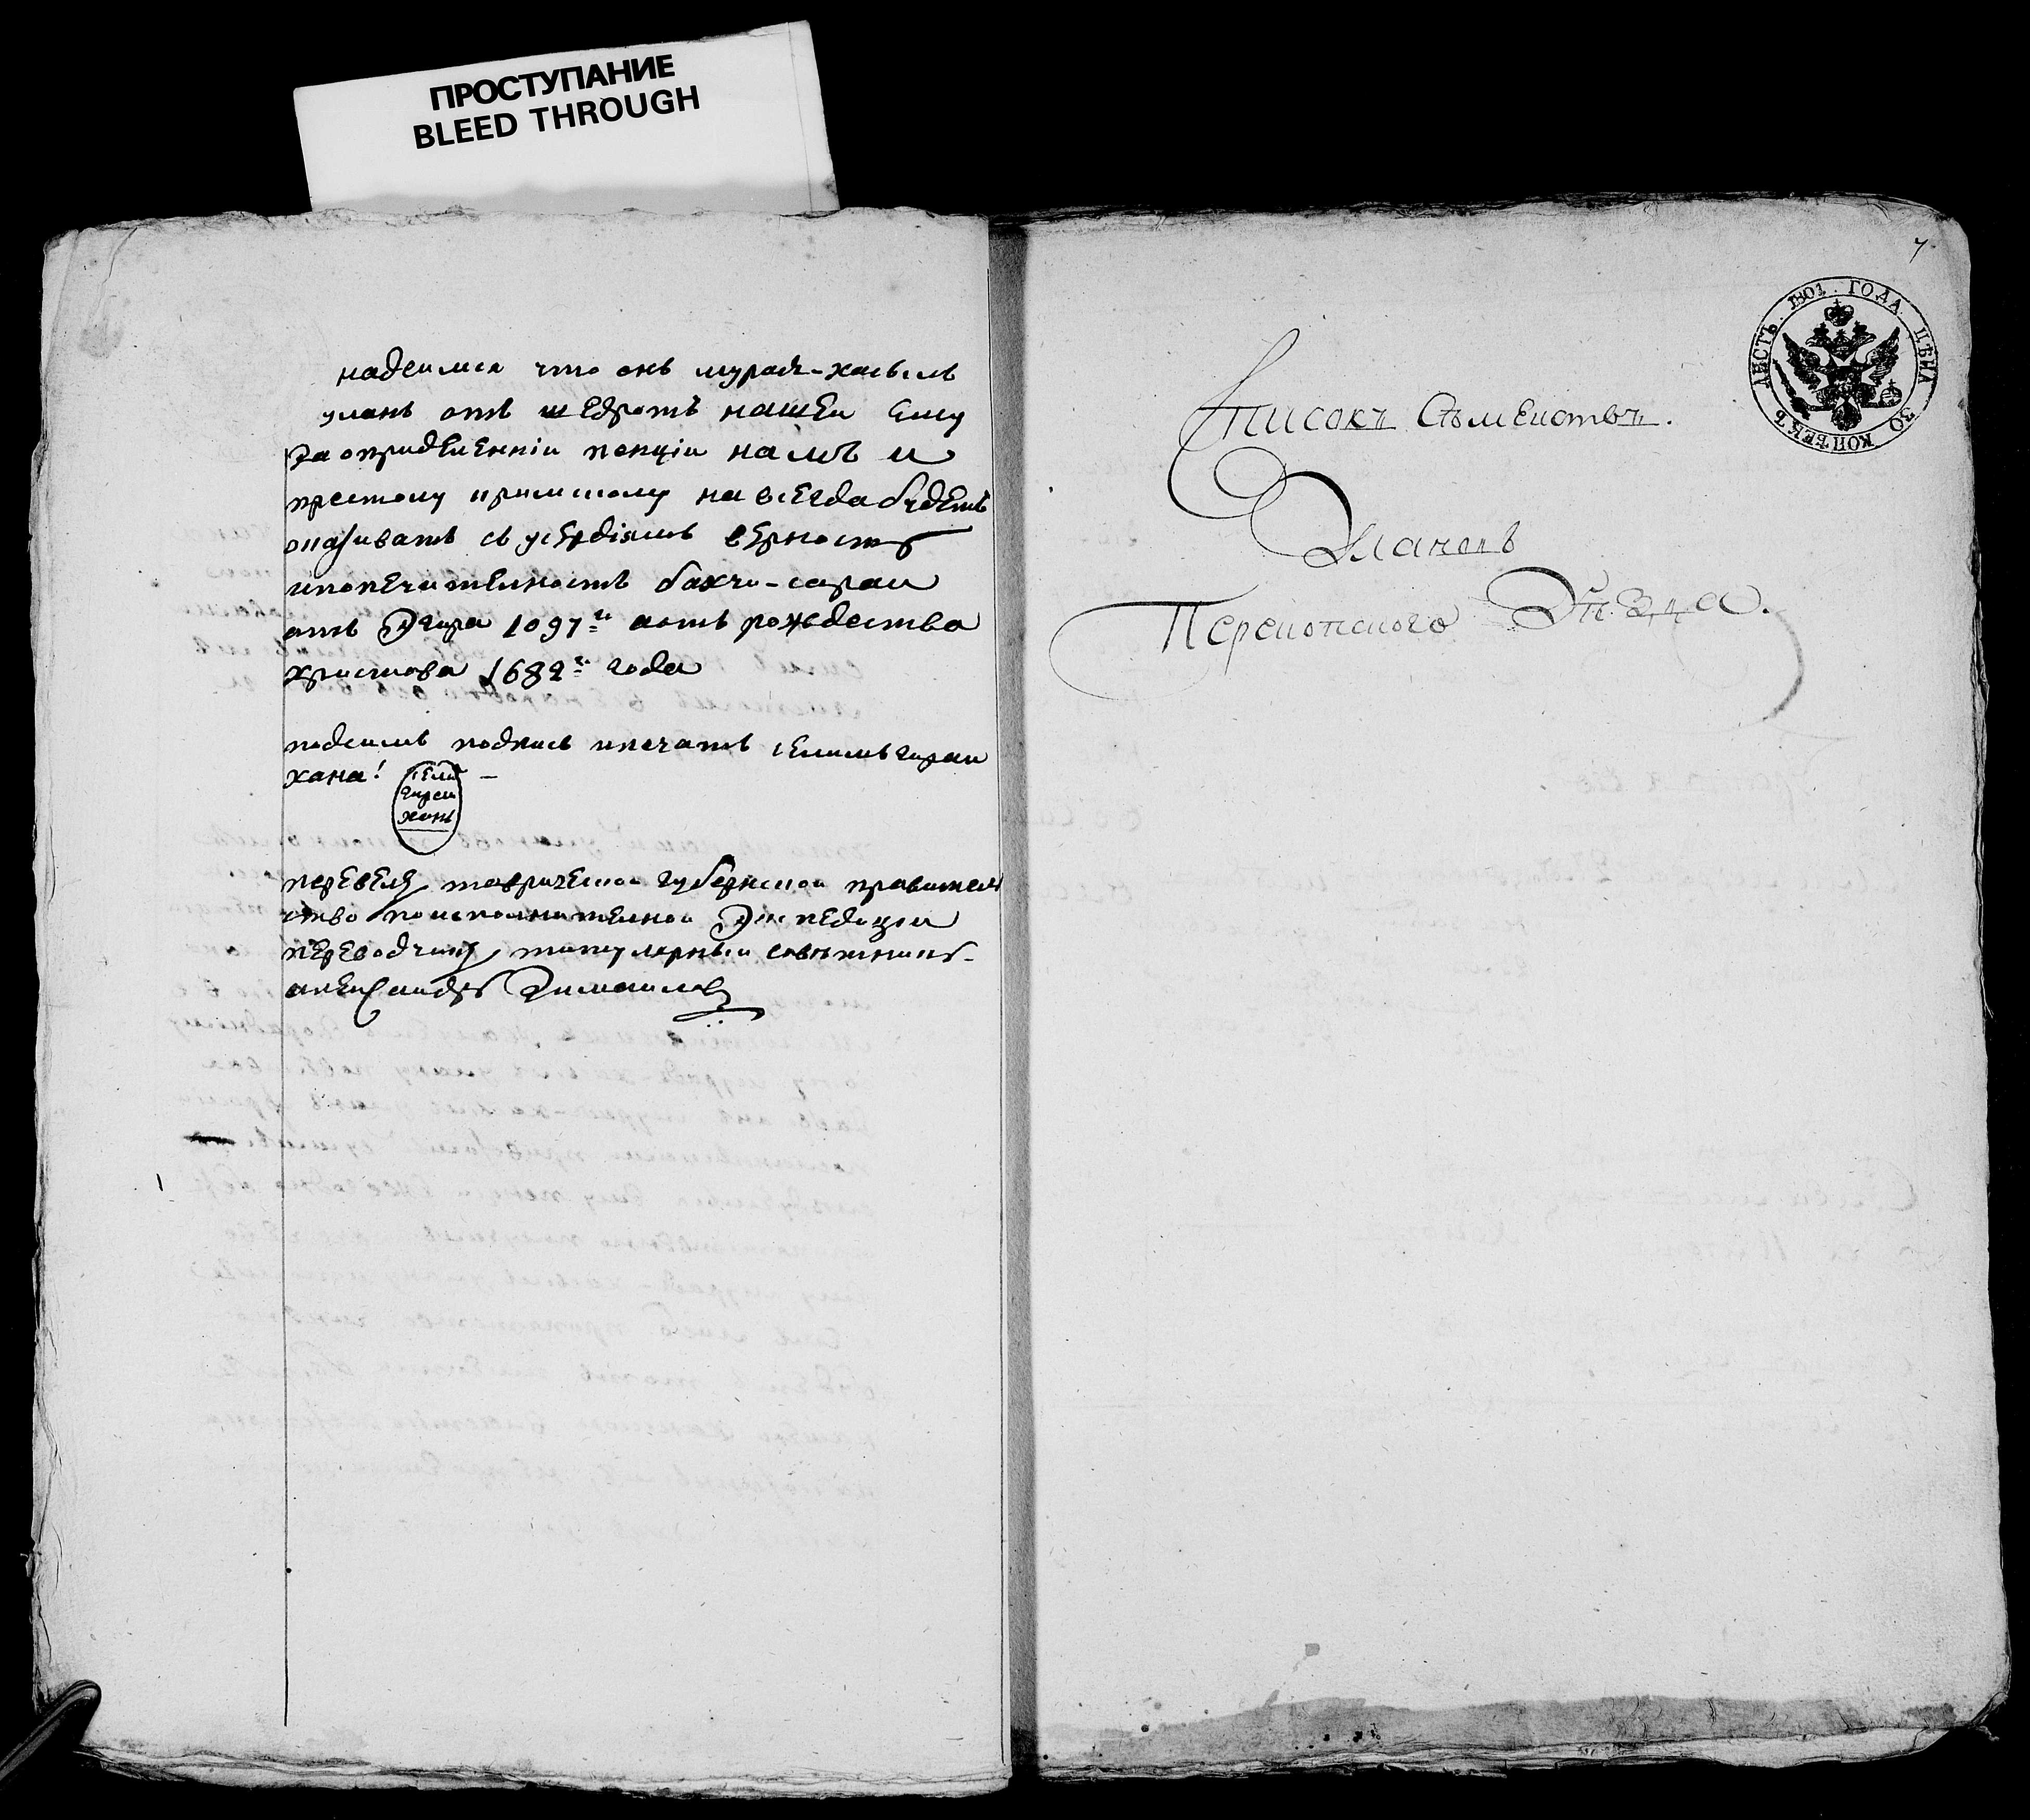 ПРОСТУПАНИЕ
BLEED THROUGH
надеимся что онъ мурад-хасылъ
уланъ отъ щедротъ нашеи ему
за опридвленніи пенціи намъ и
престолу крымскому навсегда будетъ
оказывать съ усердіямъ верность
ипопечителность бакчи-сараи
отъ Эгира 1097го аотъ рождества
христова 1682го года
подсимъ подпись ипечать селимъ гираи
хана!
гиреи
ханъ
перевелъ таврическои губернскои правител
ство поисполнителнои Экспедиціи
переводчикъ титулярныи советникъ
александръ
7
ЛИСТЪ. 1801. ГОДА ЦѢНА 30 КОПѢЕКЪ
Списокъ Сѣмействъ.
Улановъ
Перекопского Уѣзда.